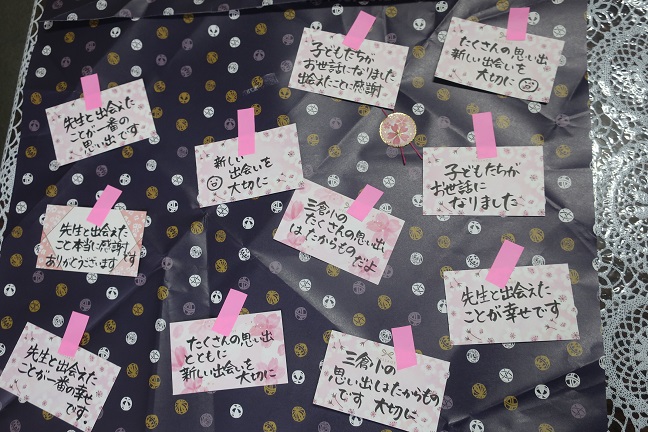 子どもたちが
お世話になりました
出会えたことに感謝
たくさんの思い出
新しい出会いを
大切に
先生と出会えた
ことが一番の
思い出です
新しい
出会いを
大切に
子どもたちが
お世話に
なりました
先生と出会えた
こと本当に感謝
ありがとうございます です
三倉小の
たくさんの思い出
はたからもの
だよ
先生と出会えた
ことが幸せです
先生と出会えた
ことが一番の幸せ
です。
たくさんの思い出
とともに
新しい出会いを
大切に
三倉小の
思い出はたからもの
です 大切に